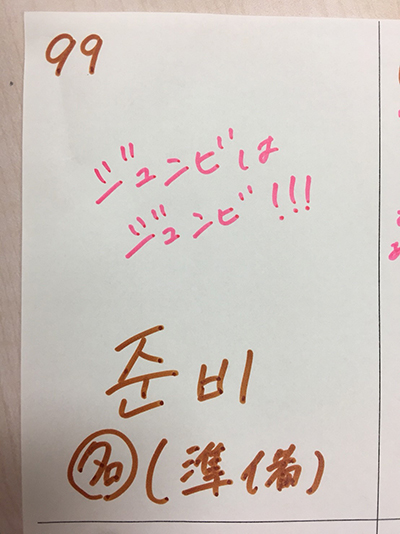 99
ジュンビは
ジュンビ!!!
준비
名(準備)